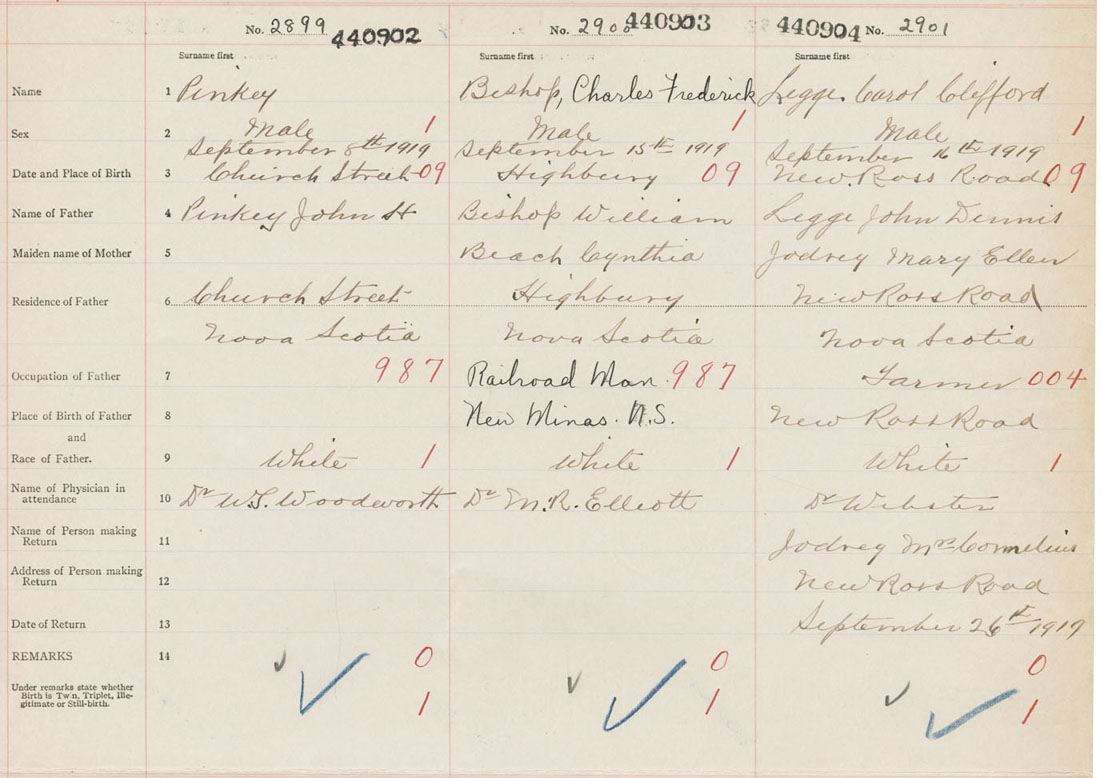 No. 2899 440902 No. 2900 440903 440904 No. 2901
Surname first Surname first Surname first
Name 1 Pinkey Bishop, Charles Frederick Legge. Carol Clifford
Sex 2 Male 1 Male 1 Male 1
September 8th 1919 September 15th 1919 September 16th 1919
Date and Place of Birth 3 Church Street 09 Highbury 09 New Ross Road 09
Name of Father 4 Pinkey John H Bishop William Legge John Dennis
Maiden name of Mother 5 Beach Cynthia Jodrey Mary Ellen
Residence of Father 6 Church Street Highbury New Ross Road
Nova Scotia Nova Scotia Nova Scotia
Occupation of Father 7 987 Railroad Man. 987 Farmer 004
Place of Birth of Father 8 New Minas. N.S. New Ross Road
and
Race of Father. 9 White 1 White 1 White 1
Name of Physician in
attendance 10 Dr W.S. Woodworth Dr M.R. Elliott Dr Webster
Name of Person making
Return 11 Jodrey Mrs Cornelius
Address of Person making
Return 12 New Ross Road
Date of Return 13 September 26th 1919
REMARKS 14 0 0 0
Under remarks state whether
Birth is Twin, Triplet, Ille-
gitimate or Still-birth. 1 1 1